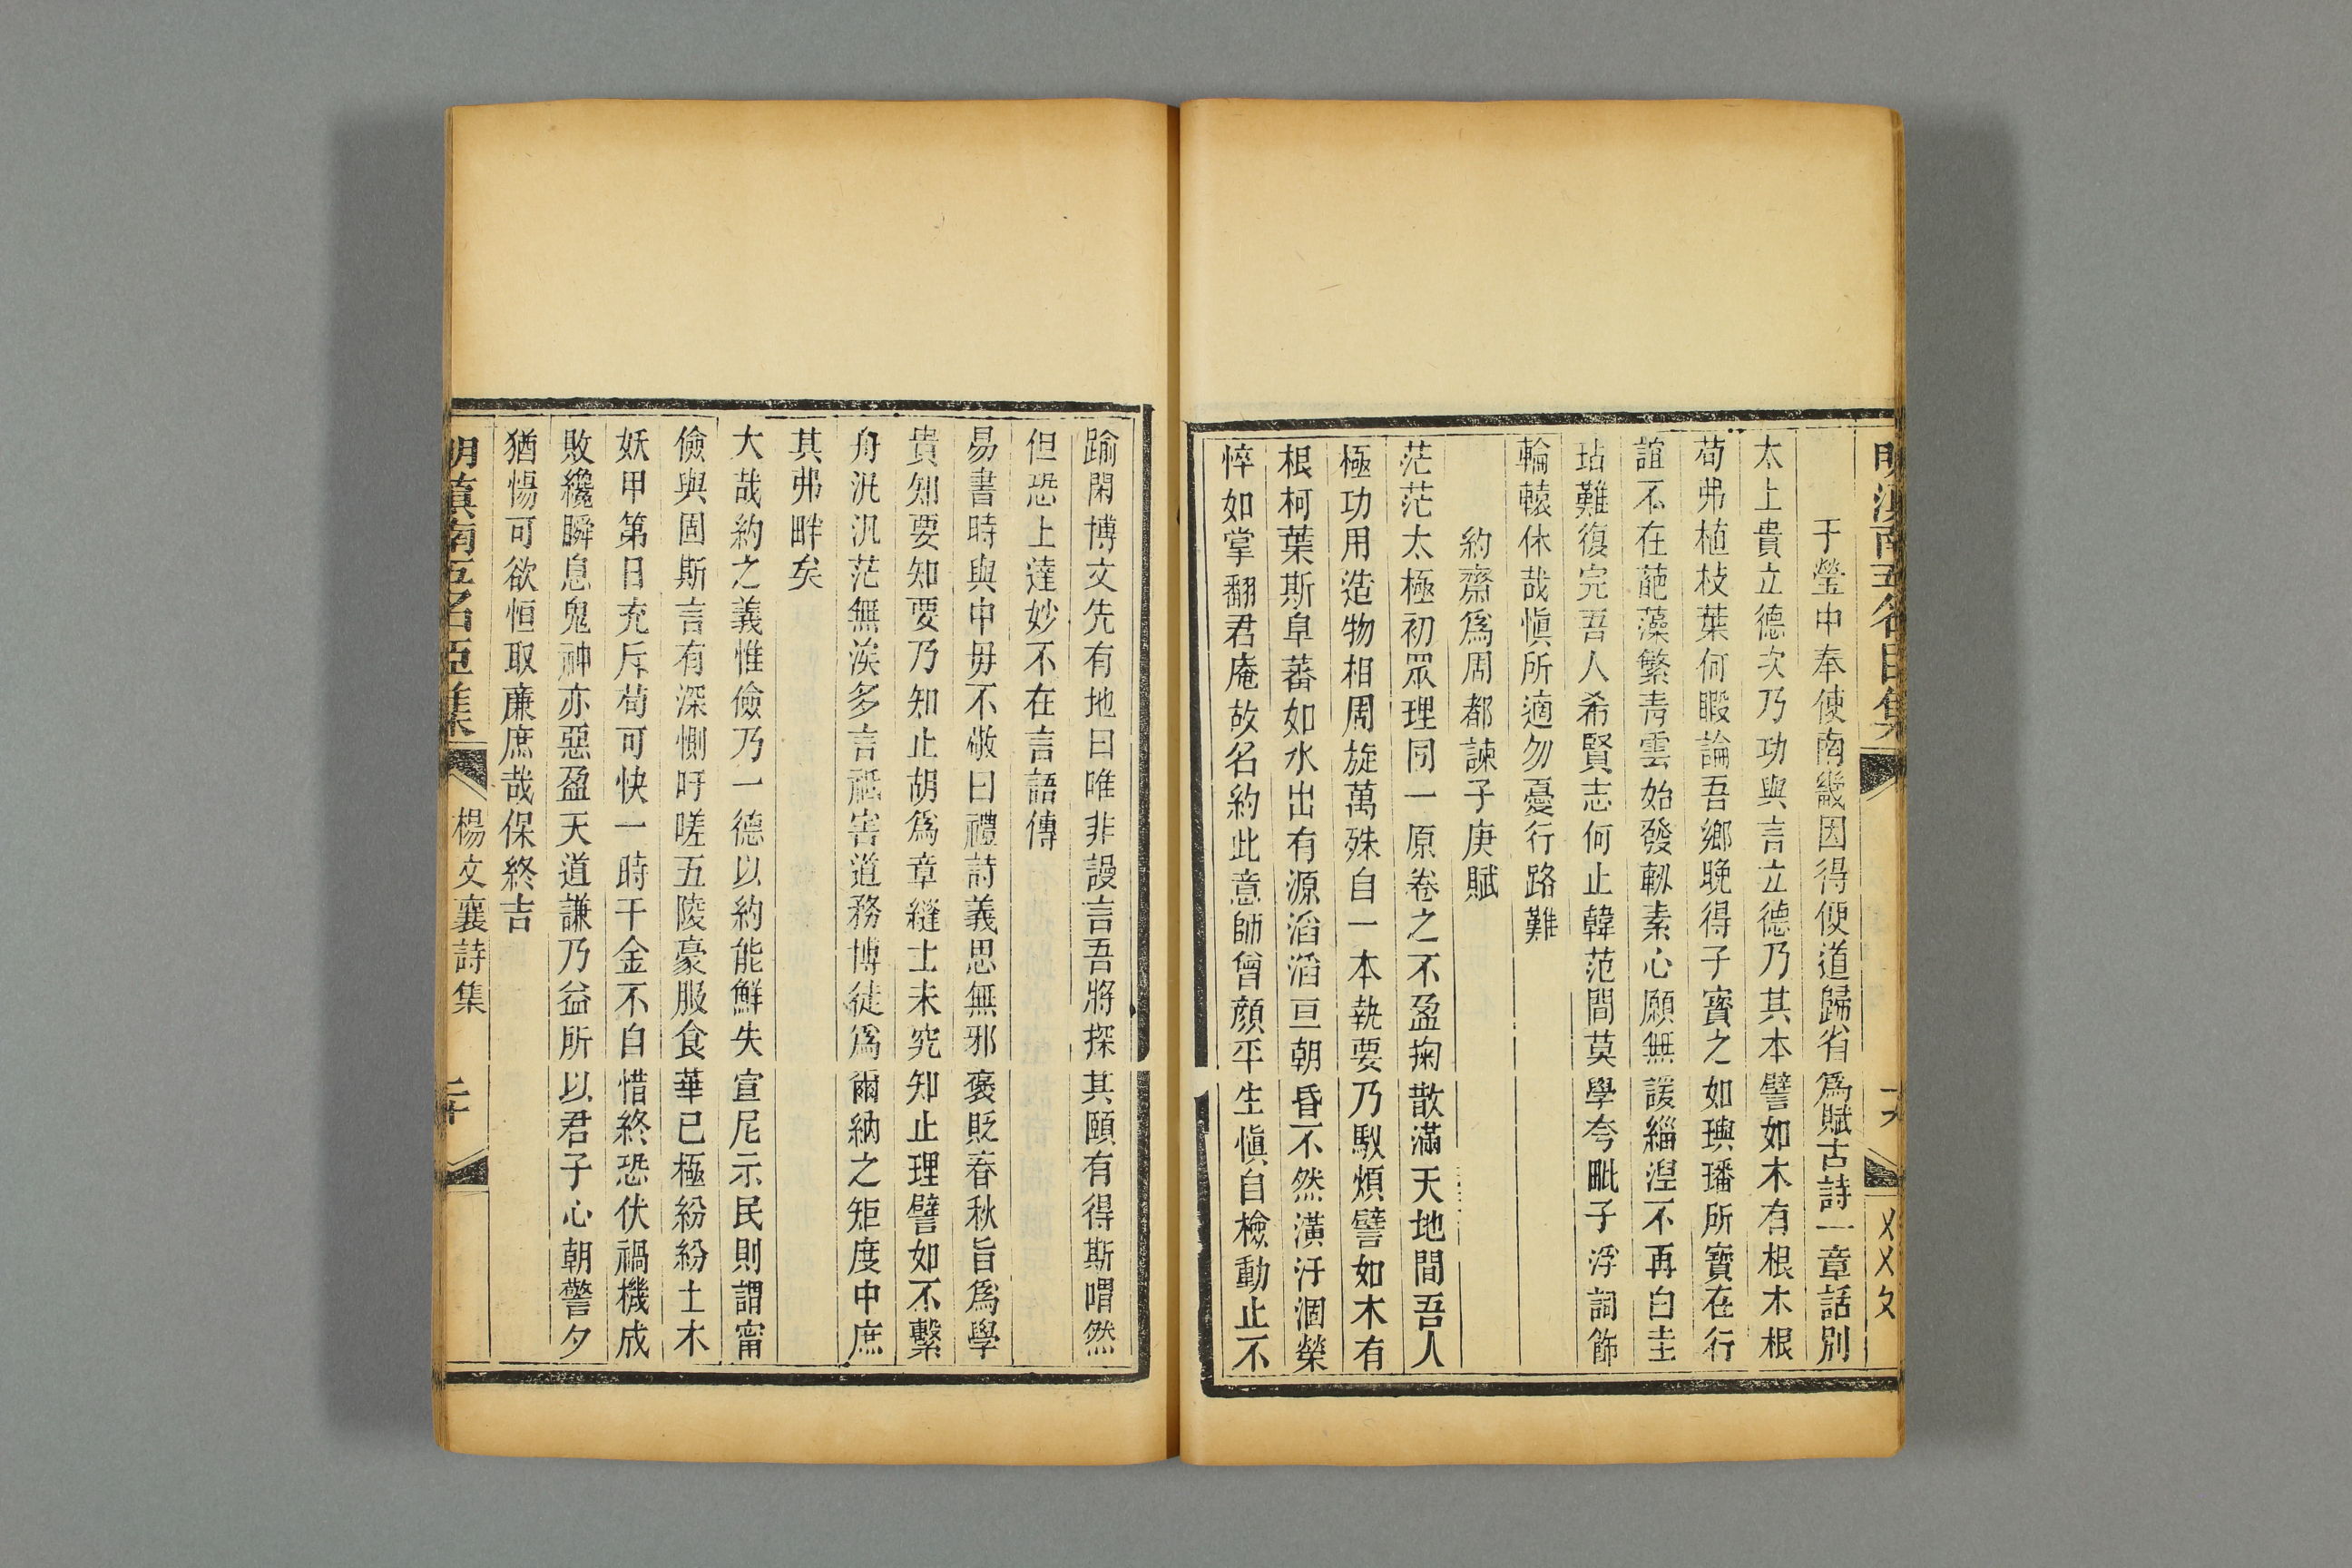 于瑩中奉使南畿因得便道歸省爲賦古詩一章話別
太上貴立德次乃功與言立德乃其本譬如木有根木根
苟弗植枝葉何暇論吾鄉晚得子寶之如璵璠所寶在行
誼不在葩藻繁靑雲始發軔素心願無諼緇湼不再白圭
玷難復完吾人希賢志何止韓范間莫學夸毗子浮詞飾
輪轅休哉愼所適勿憂行路難
約齋爲周都諫子庚賦
茫茫太極初眾理同一原卷之不盈掬散滿天地間吾人
極功用造物相周旋萬殊自一本執要乃馭煩譬如木有
根柯葉斯阜蕃如水出有源滔滔亘朝昏不然潢汙涸榮
悴如掌翻君庵故名約此意師曾顔平生愼自檢動止不
踰閑博文先有地曰唯非謾言吾將探其頤有得斯喟然
但恐上達妙不在言語傳
易書時與中毋不敬曰禮詩義思無邪褒貶春秋旨爲學
貴知要知要乃知止胡爲章縫士未究知止理譬如不繫
舟汎汎茫無涘多言祗害道務博徒爲爾納之矩度中庶
其弗畔矣
大哉約之義惟儉乃一德以約能鮮失宣尼示民則謂甯
儉與固斯言有深惻吁嗟五陵豪服食華已極紛紛土木
妖甲第日充斥苟可快一時千金不自惜終恐伏禍機成
敗纔瞬息鬼神亦惡盈天道謙乃益所以君子心朝警夕
猶惕可欲恒取廉庶哉保終吉
明滇南五名臣集 楊文襄詩集 二十